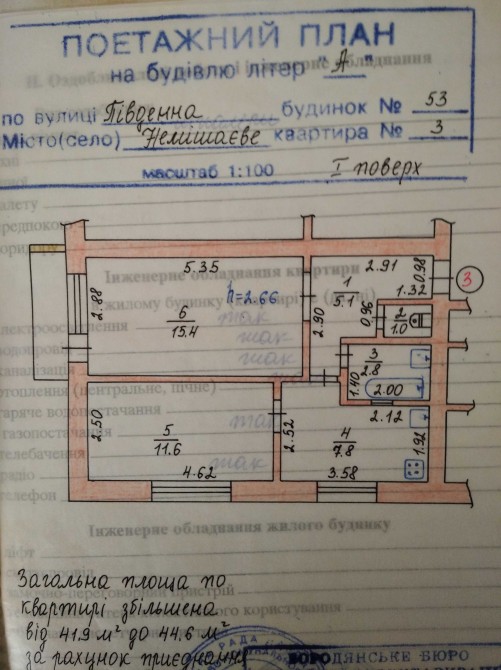 ПОЕТАЖНИЙ ПЛАН
на будівлю літер "А"
по вулиці Південна будинок № 53
Місто(село) Немішаєве квартира № 3
масштаб 1:100 І поверх
Інженерне обладнання квартири
5.35
h=2.66
6
15.4
2.88
2.90
1
5.1
2.91
0.98
1.32
3
0.96
2
1.0
3
2.8
1.40
2.00
2.12
5
11.6
2.50
4.62
2.52
4
7.8
1.92
3.58
електроосвітлення так
так
так
опалення (центральне, пічне)
гаряче водопостачання
газопостачання так
телебачення
радіо так
телефон
Інженерне обладнання жилого будинку
Загальна площа по
квартирі збільшена
від 41.9 м² до 44.6 м²
за рахунок приєднання
БОРОДЯНСЬКЕ БЮРО